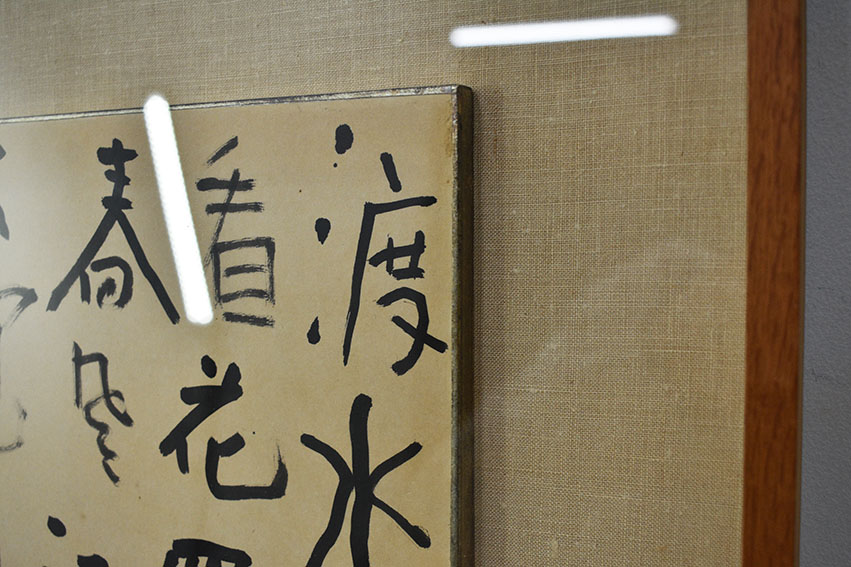 渡水
看花
春風